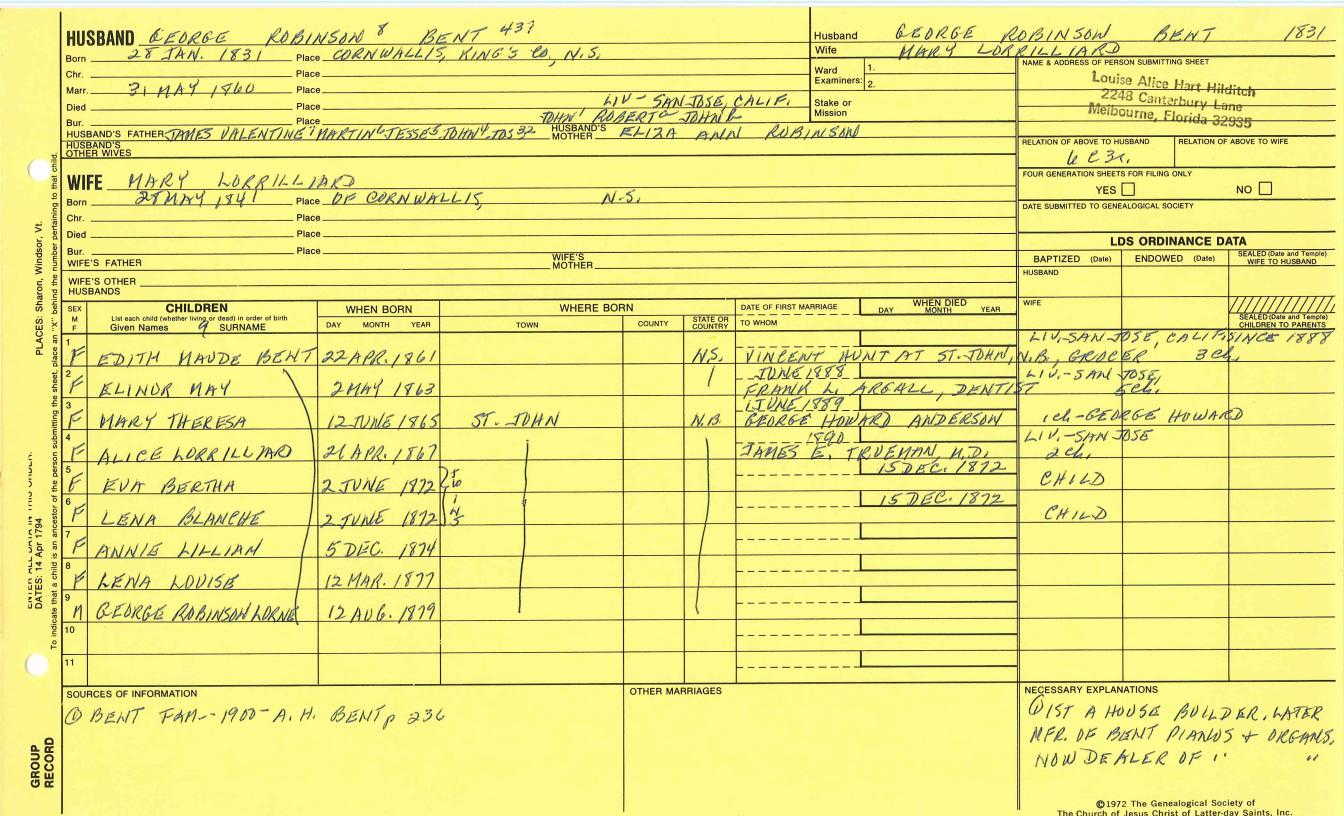 HUSBAND GEORGE ROBINSON 8 BENT 437
Born 28 JAN. 1831 Place CORNWALLIS, KING'S CO, N.S.
Chr. Place
Marr. 31 MAY 1860 Place
Died Place LIV - SAN JOSE, CALIF.
Bur. Place JOHN' ROBERT JOHN
HUSBAND'S FATHER JAMES VALENTINE MARTIN JESSE JOHN JOS HUSBAND'S MOTHER ELIZA ANN ROBINSON
HUSBAND'S OTHER WIVES
WIFE MARY LORRILLIARD
Born 28 MAY 1841 Place OF CORNWALLIS, N.S.
Chr. Place
Died Place
Bur. Place
WIFE'S FATHER WIFE'S MOTHER
WIFE'S OTHER HUSBANDS
Husband GEORGE ROBINSON BENT 1831
Wife MARY LORRILLIARD
Ward Examiners: 1. 2.
Stake or Mission
NAME & ADDRESS OF PERSON SUBMITTING SHEET
Louise Alice Hart Hilditch
2248 Canterbury Lane
Melbourne, Florida 32935
RELATION OF ABOVE TO HUSBAND RELATION OF ABOVE TO WIFE
6 C 3r.
FOUR GENERATION SHEETS FOR FILING ONLY
YES NO
DATE SUBMITTED TO GENEALOGICAL SOCIETY
LDS ORDINANCE DATA
BAPTIZED (Date) ENDOWED (Date) SEALED (Date and Temple) WIFE TO HUSBAND
HUSBAND
WIFE
SEALED (Date and Temple) CHILDREN TO PARENTS
SEX M F CHILDREN WHEN BORN WHERE BORN DATE OF FIRST MARRIAGE WHEN DIED
List each child (whether living or dead) in order of birth
Given Names 9 SURNAME DAY MONTH YEAR TOWN COUNTY STATE OR COUNTRY TO WHOM DAY MONTH YEAR
LIV.-SAN JOSE, CALIF. SINCE 1888
1 F EDITH MAUDE BENT 22 APR. 1861 N.S. VINCENT HUNT AT ST. JOHN, N.B., GROCER 3 ch.
JUNE 1888 LIV.-SAN JOSE,
2 F ELINOR MAY 2 MAY 1863 FRANK L. ARGALL, DENTIST 5 ch.
1 JUNE 1889
3 F MARY THERESA 12 JUNE 1865 ST. JOHN N.B. GEORGE HOWARD ANDERSON 1 ch - GEORGE HOWARD
1890 LIV.-SAN JOSE
4 F ALICE LORRILLIARD 21 APR. 1867 JAMES E. TRUEMAN, M.D. 2 ch.
5 F EVA BERTHA 2 JUNE 1872 15 DEC. 1872 CHILD
6 F LENA BLANCHE 2 JUNE 1872 15 DEC. 1872 CHILD
7 F ANNIE LILLIAN 5 DEC. 1874
8 F LENA LOUISE 12 MAR. 1877
9 M GEORGE ROBINSON LORNE 12 AUG. 1879
10
11
SOURCES OF INFORMATION
① BENT FAM-- 1900 - A. H. BENT p 236
OTHER MARRIAGES
NECESSARY EXPLANATIONS
① 1ST A HOUSE BUILDER, LATER
MFR. OF BENT PIANOS & ORGANS,
NOW DEALER OF " "
©1972 The Genealogical Society of
The Church of Jesus Christ of Latter-day Saints, Inc.
PLACES: Sharon, Windsor, Vt.
ENTER ALL DATA IN THIS ORDER:
DATES: 14 Apr 1794
To indicate that a child is an ancestor of the person submitting the sheet, place an "X" behind the number pertaining to that child.
GROUP RECORD